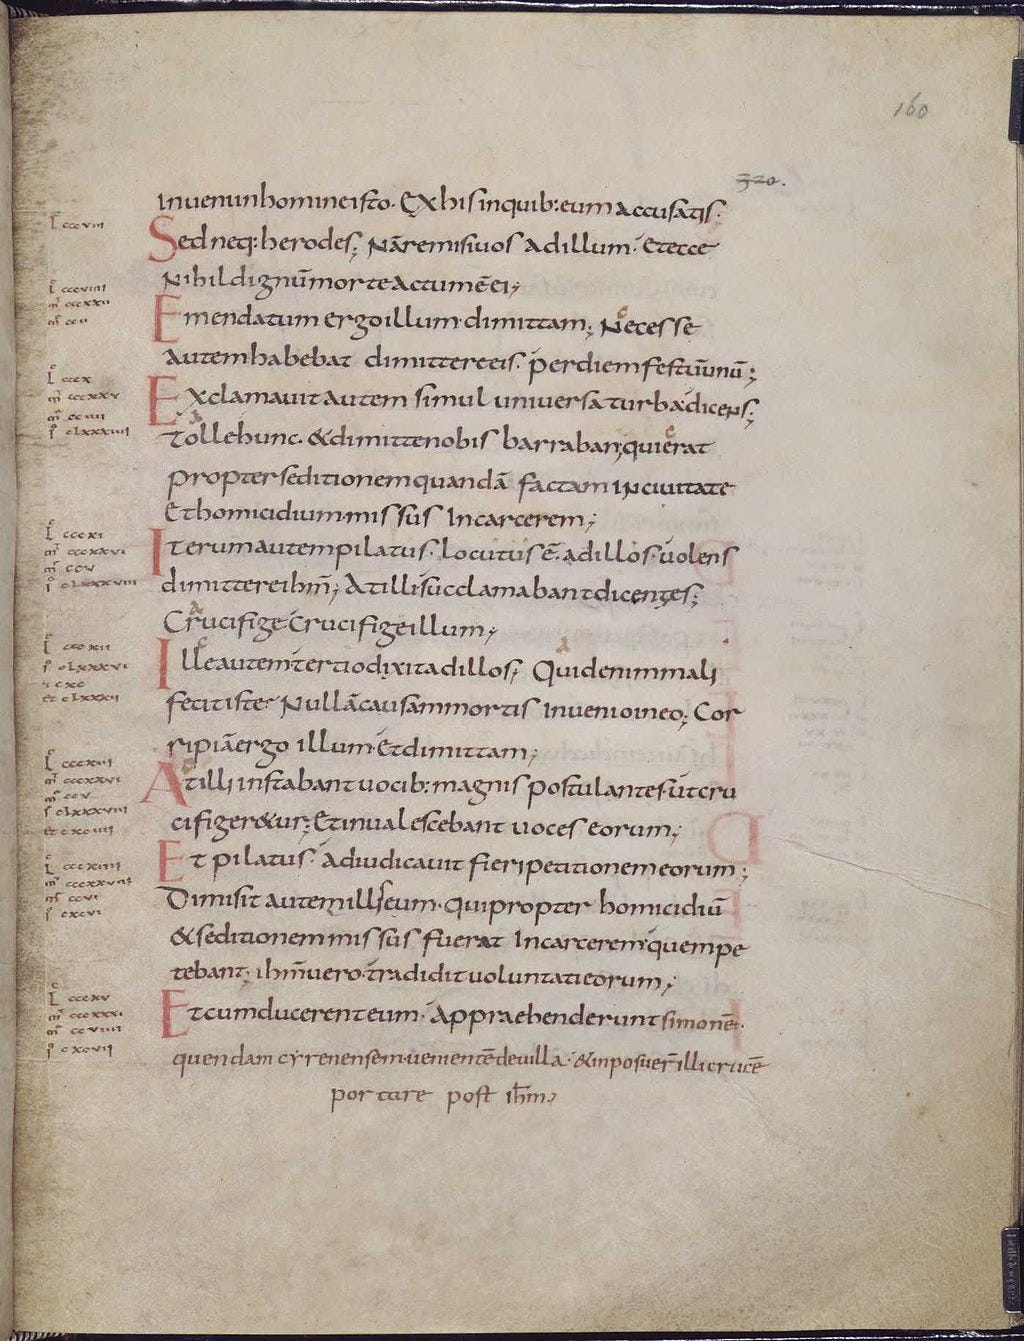 160
320.
invenun homine isto. Ex his in quib: eum accusatis.
Sed neq: herodes; Nā remisi vos ad illum. Et ecce
Nihil dignū morte actum ē ei;
Emendatum ergo illum dimittam; Necesse
autem habebat dimittere eis. per diem festū unū;
Exclamavit autem simul universa turba dicens;
Tolle hunc. & dimitte nobis barraban; qui erat
propter seditionem quandā factam in civitate
Et homicidium missus In carcerem;
Iterum autem pilatus. locutus ē. ad illos. volens
dimittere ihm̄; At illi succlamabant dicentes;
Crucifige Crucifige illum;
Ille autem tertio dixit ad illos; Quid enim mali
fecit iste? Nullā causam mortis Invenio in eo; Cor
ripiā ergo illum. Et dimittam;
At illi instabant vocib: magnis postulantes ut cru
cifiger&ur; Et invalescebant voces eorum;
Et pilatus. adiudicavit fieri petitionem eorum;
Dimisit autem illis eum. qui propter homicidiū
& seditionem missus fuerat In carcerem. quem pe
tebant; ihm̄ vero. tradidit voluntati eorum;
Et cum ducerent eum. Appraehenderunt simonē.
quendam cyrenensem. venientē de villa. & inposuer̄ illi crucē
portare post ihm̄.
L cccviii
L cccviiii
m̄ cccxxii
L cccx
L cccxi
m̄ cccxxvi
m̄ ccv
L cccxii
L cccxiii
m̄ cccxxvi
m̄ ccv
L cccxiiii
m̄ ccvi
L cccxv
m̄ cccxxxi